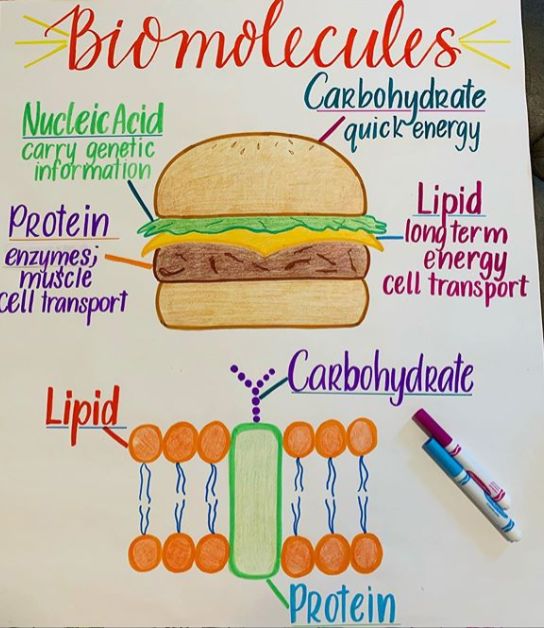 Biomolecules
Carbohydrate
quick energy
Nucleic Acid
carry genetic
information
Lipid
long term
energy
cell transport
Protein
enzymes;
muscle
cell transport
Carbohydrate
Lipid
Protein